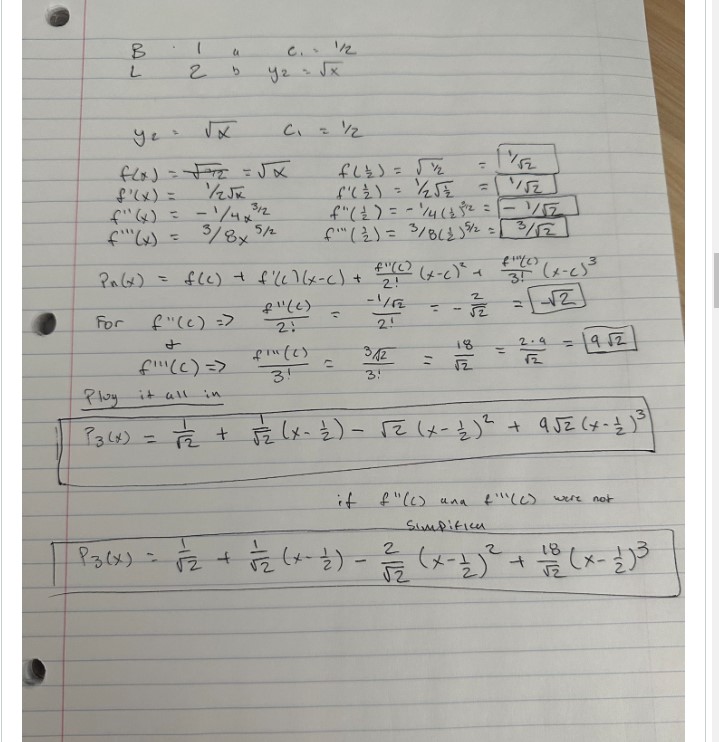 B · 1 a c₁ = 1/2
L 2 b y₂ = √x
y₂ = √x c₁ = 1/2
f(x) = = √x f(½) = √½ = 1/√2
f'(x) = 1/2√x f'(½) = 1/2√½ = 1/√2
f''(x) = -1/4x^3/2 f''(½) = -1/4(½)^3/2 = -1/√2
f'''(x) = 3/8x^5/2 f'''(½) = 3/8(½)^5/2 = 3/√2
Pn(x) = f(c) + f'(c)(x-c) + f''(c)/2! (x-c)² + f'''(c)/3! (x-c)³
For f''(c) => f''(c)/2! = -1/√2/2! = -2/√2 = -√2
& f'''(c) => f'''(c)/3! = 3/√2/3! = 18/√2 = 2·9/√2 = 9√2
Plug it all in
P3(x) = 1/√2 + 1/√2 (x-½) - √2 (x-½)² + 9√2 (x-½)³
if f''(c) and f'''(c) were not
simplified
P3(x) = 1/√2 + 1/√2 (x-½) - 2/√2 (x-½)² + 18/√2 (x-½)³